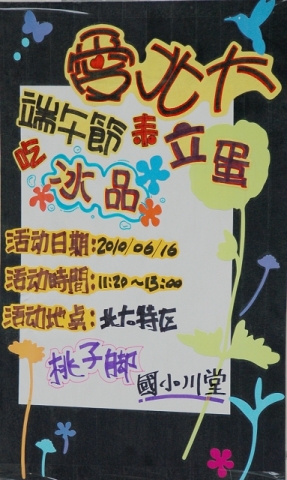 愛北大
端午節 來 立蛋
吃 冰品
活动日期:2010/06/16
活动時間:11:20~13:00
活动地点:北大特区
桃子脚
國小川堂